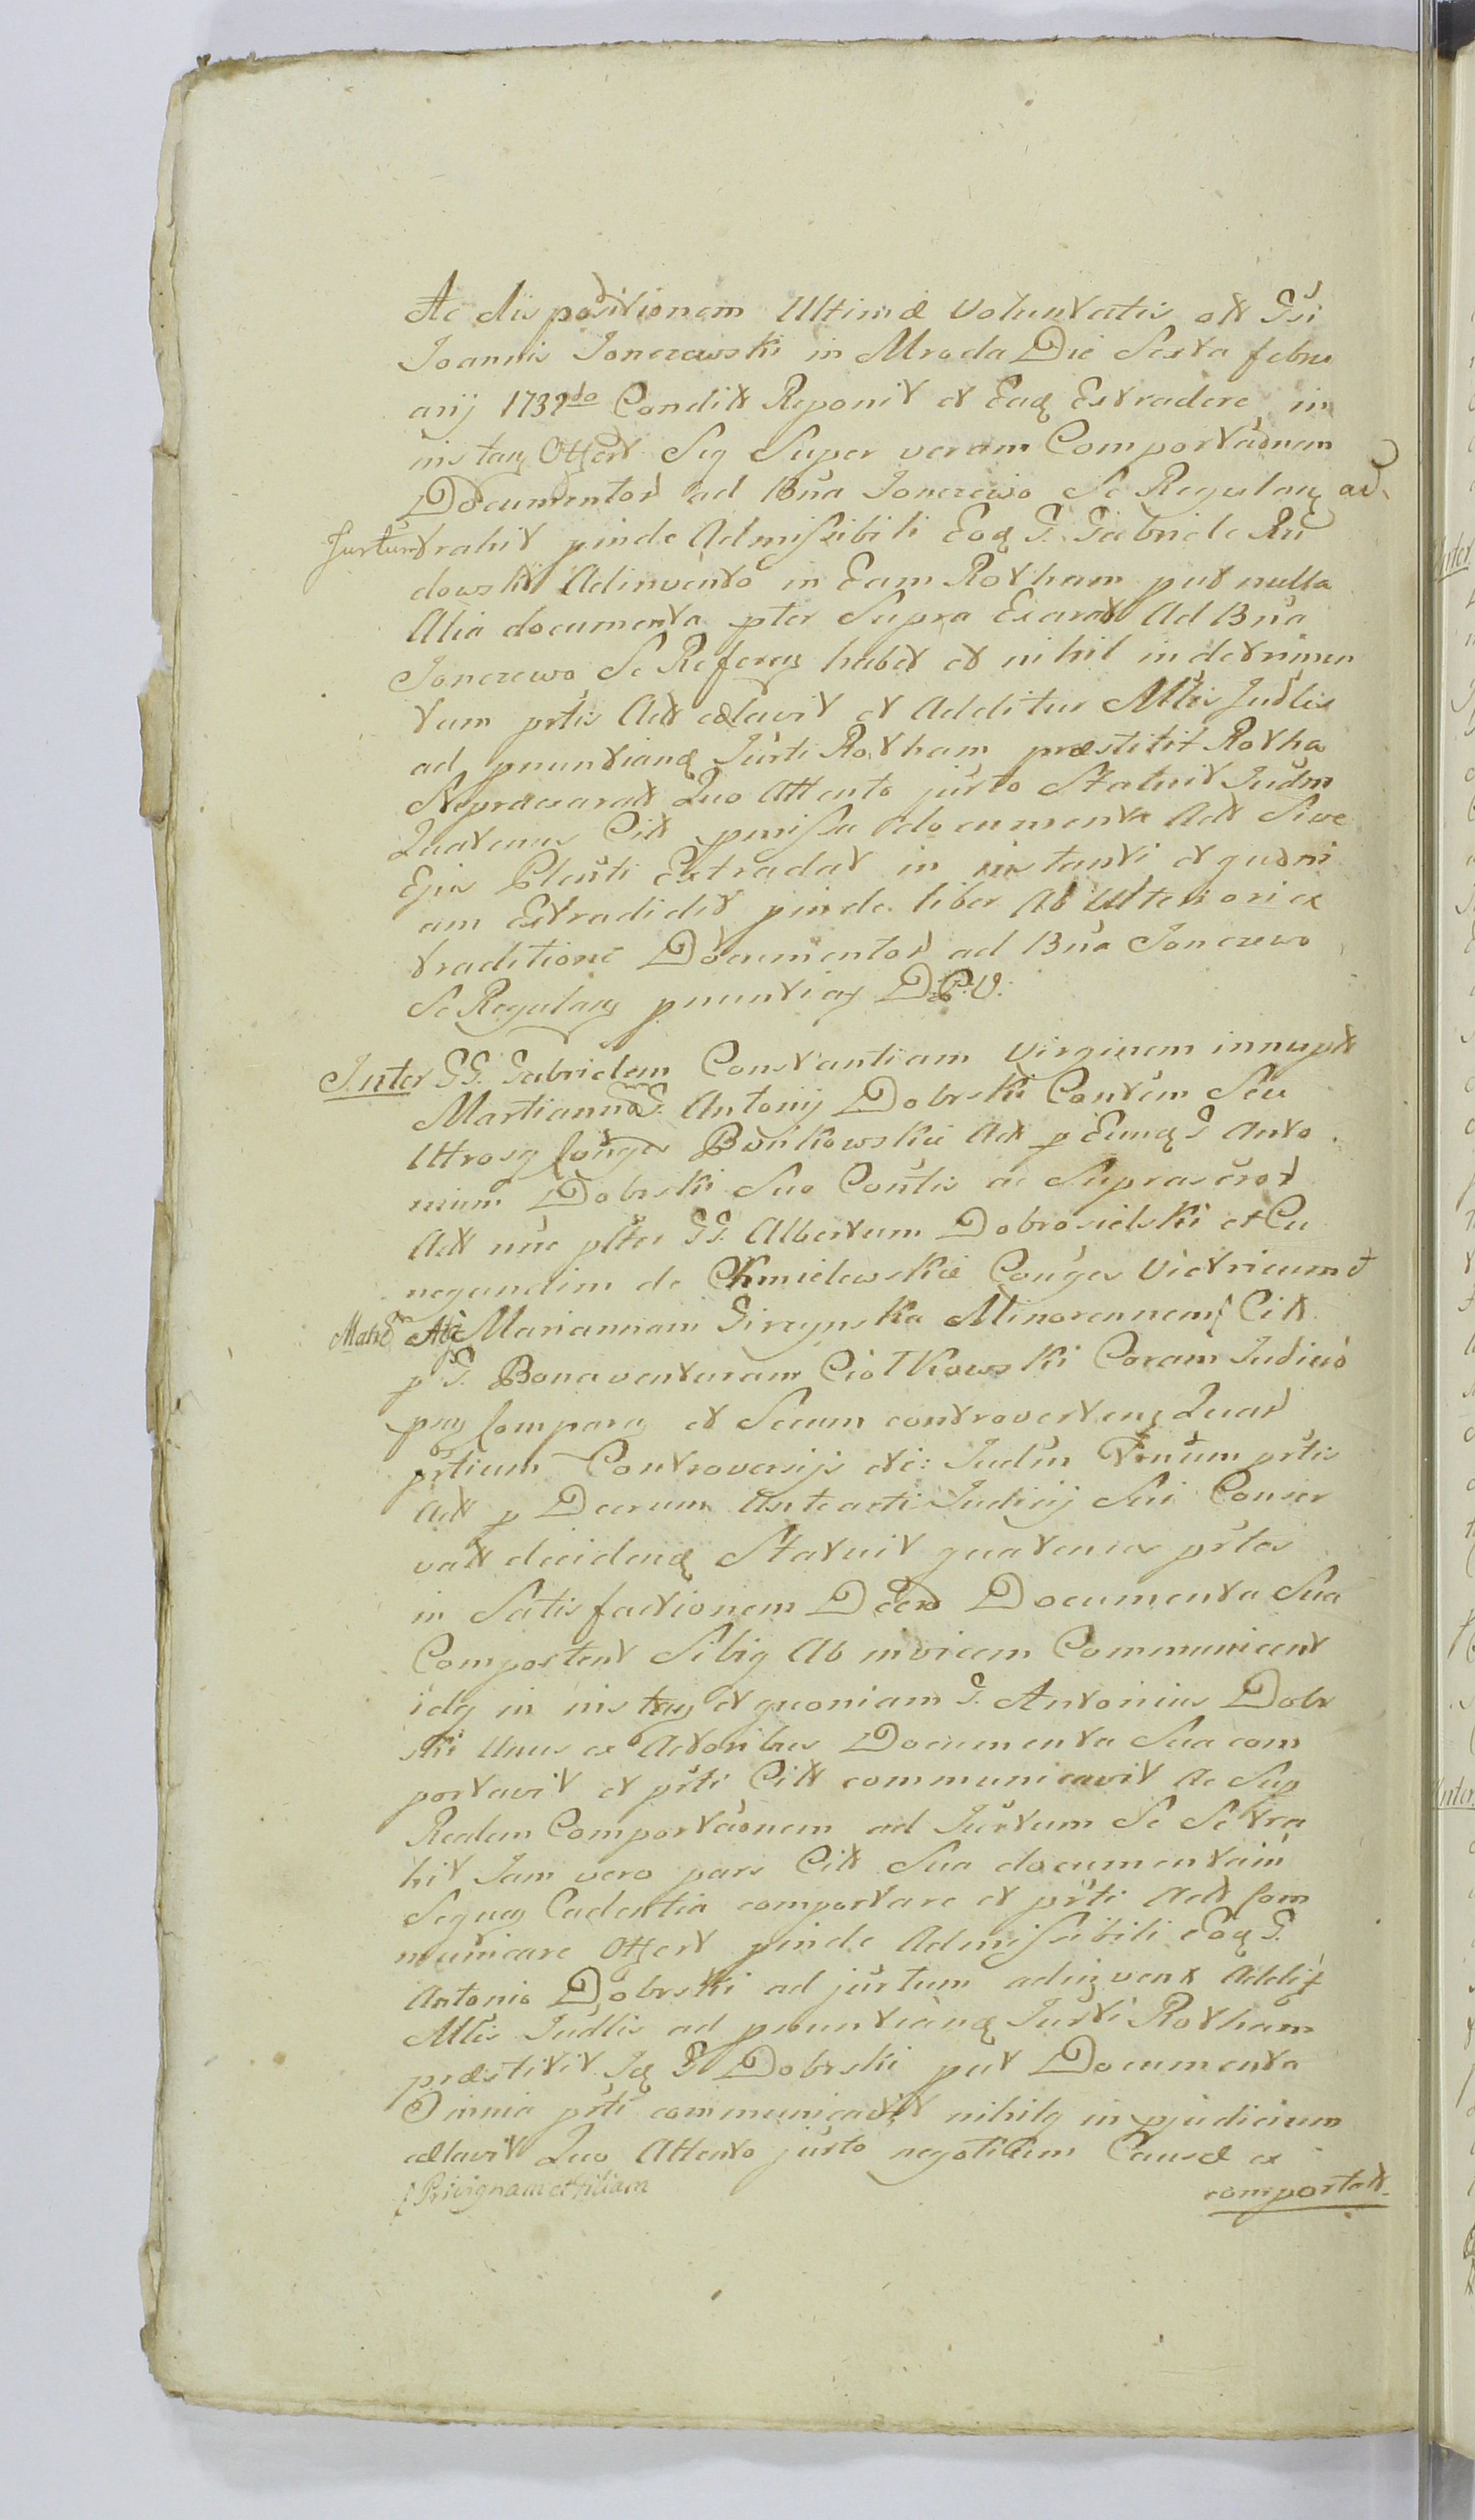 Ac dispositionem Ultimæ Voluntatis olt Gsi
Joannis Jonczewski in Mroda Die Sexta febru
arij 1732do Condit Reponit et Eaq Extradere in
instan Offert Seq Super veram Comportaonem
Documentor ad Bna Jonczewo Se Regulan ad
Jurtum trahit pinde Admissibili Eoq G. Gabriele Ru
dowski Adinvento in Eam Rotham put nulla
Alia documenta pter Supra Exarat Ad Bna
Jonczewo Se Referen habet et nihil in detrimen
tum prtis Act cœlavit et Additur Mltis Judlis
ad pnuntianq Jurti Rotham præstitit Rotha
Repraesarat Quo Attento jurto Statuit Judm
Quatenus Cit pmissa documenta Act Sive
Ejus Plenti Extradat in instanti et quoni
am Extradidit pinde liber Ab Ulteriori ex
traditione Documentor ad Bna Jonczewo
Se Regulan pnuntiat D.P.V.
Inter GG. Gabrielem Constantiam Virginem innupt
Martiannam G. Antonij Dobrski Contem Seu
Utrosq Conges Bonkowskie Act p Eunq G Anto
nium Dobrski Suo Contis ac Suprascrot
Act nne plter GG. Albertum Dobrosielski et Cu
negundim de Chmielewskie Conges Victricum et
Matre Atq Mariannam Girzynska Minorennem Cit
p G. Bonaventuram Ciołkowski Coram Judicio
pns Comparen et Secum controverten Quar
prtium Controversijs etc: Judm Trnum prtis
Act p Decrum Anteacti Judicij Sui Conser
vat decidenq Statuit quatenus prtes
in Satisfactionem Decri Documenta Sua
Comportent Sibiq Ab invicem Communicent
idq in instan et quoniam G. Antonius Dobr
ski Unus ex Actoribus Documenta Sua com
portavit et prti Cit communicavit Ac Sup
Realem Comportaonem ad Jurtum Se Setra
hit Jam vero pars Cit Sua documenta in
Sequen Cadentia comportare et prti Act Com
municare Offert pinde Admissibili Eoq G.
Antonio Dobrski ad jurtum adinvent Addit
Mltis Judlis ad pnuntianq Jurti Rotham
præstitit Iq G Dobrski put Documenta
Omnia prti communicavit nihilq in pjudicium
cœlavit Quo Attento jurto negotium Causæ ex
Privignam et filiam
comportat